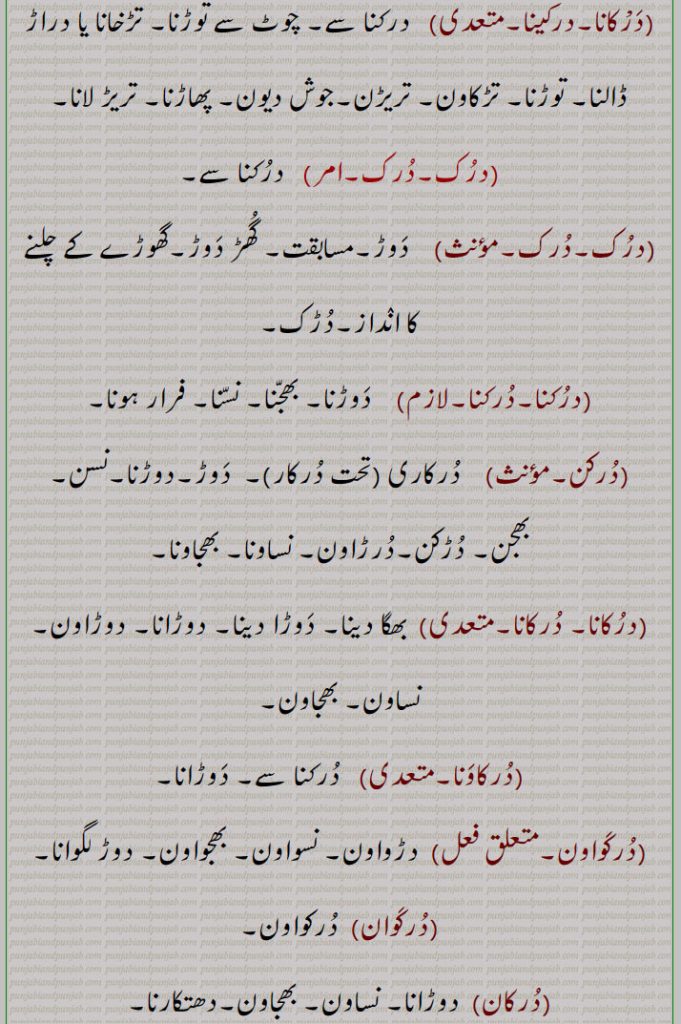 (دَرْکانا۔درکینا۔متعدی) درکنا سے۔ چوٹ سے توڑنا۔ تڑخانا یا دراڑ
ڈالنا۔ توڑنا۔ تڑکاون۔ تریڑن۔جوش دیون۔ پھاڑنا۔ تریڑ لانا۔
(درُک۔دُرک۔امر) درُکنا سے۔
(درُک۔دُرک۔مؤنث) دَوڑ۔مسابقت۔ گُھڑ دَوڑ۔گھوڑے کے چلنے
کا انداز۔دُڑک۔
(درُکنا۔دُرکنا۔لازم) دَوڑنا۔ بھجّنا۔ نسّنا۔ فرار ہونا۔
(دُرکن۔مؤنث) دُرکاری (تحت دُرکار)۔ دَوڑ۔دوڑنا۔نسن۔
بھجن۔ دُڑکن۔دُرڑاون۔ نساونا۔ بھجاونا۔
(درُکانا۔ دُرکانا۔متعدی) بھگا دینا۔ دَوڑا دینا۔ دوڑانا۔ دوڑاون۔
نساون۔ بھجاون۔
(دُرکاوَنا۔متعدی) دُرکنا سے۔ دَوڑانا۔
(دُرکَواون۔متعلق فعل) دڑواون۔ نسواون۔ بھجواون۔ دوڑ لگوانا۔
(دُرکَوان) دُرکواون۔
(دُرکان) دوڑانا۔ نساون۔ بھجاون۔دھتکارنا۔